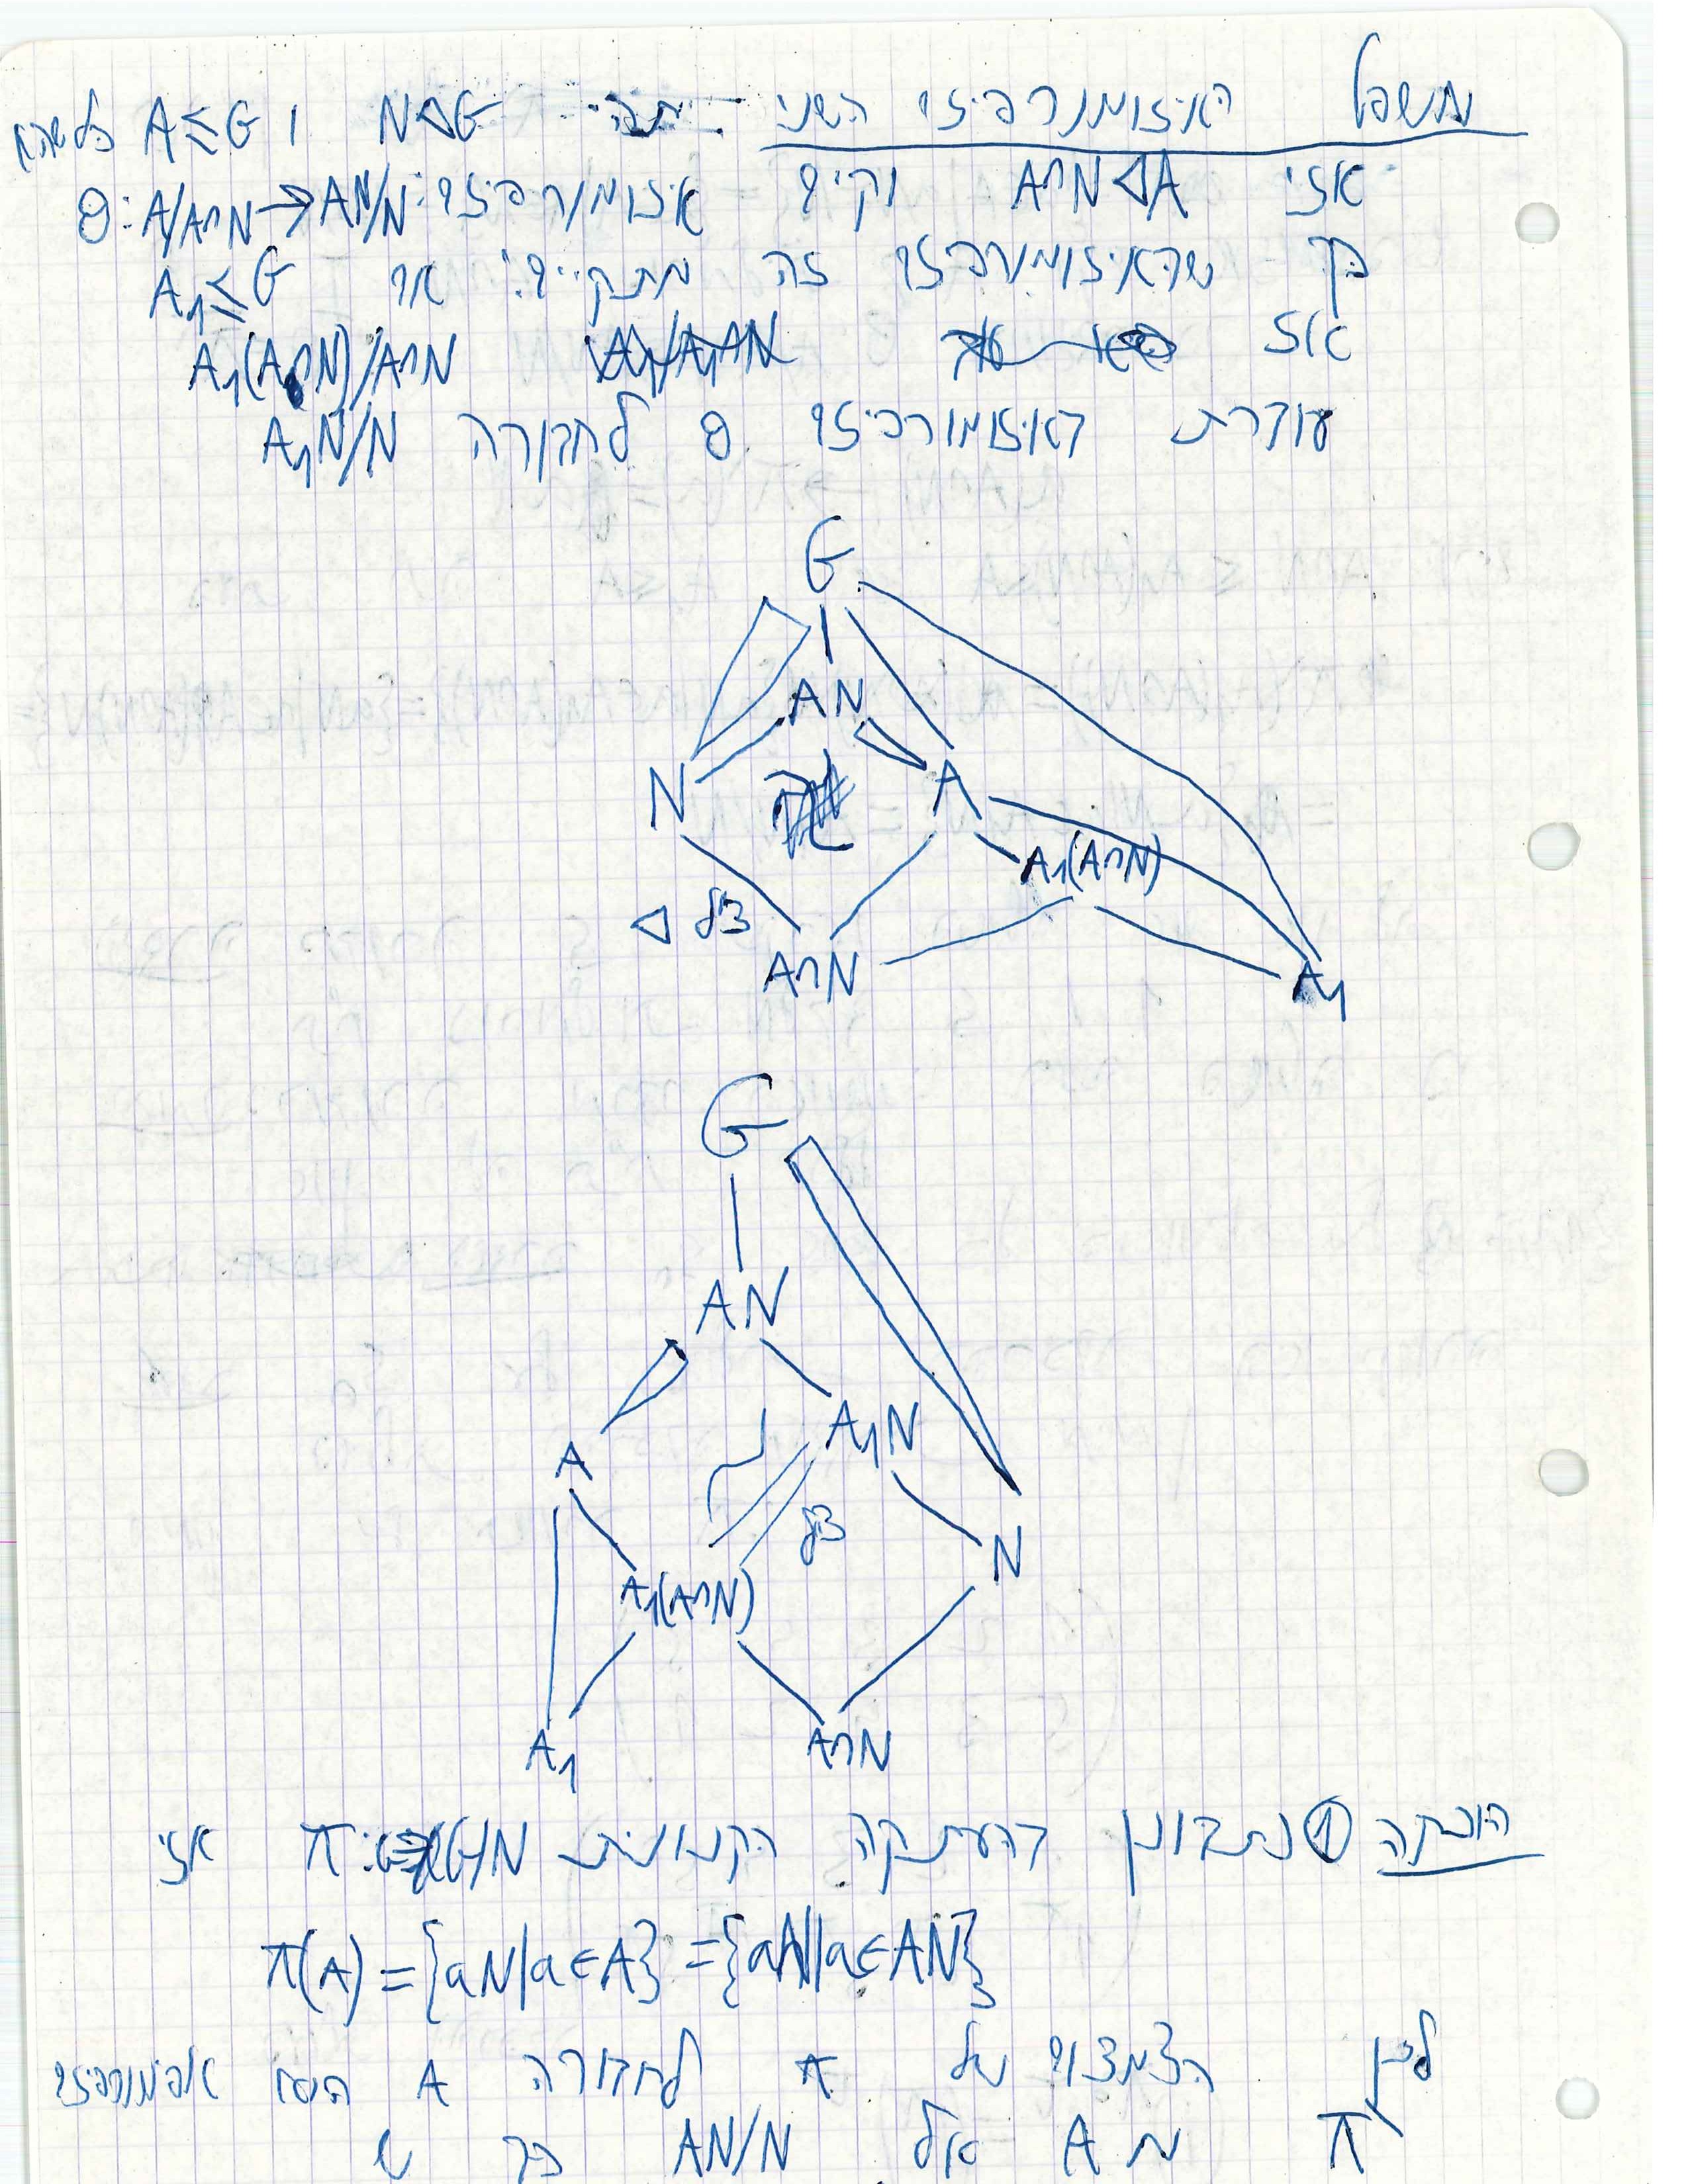 משפט האיזומורפיזם השני יהי N◁G ו A≤G כלשהי
אזי A∩N◁A וקיים איזומורפיזם θ:A/A∩N→AN/N
כך שהאיזומורפיזם זה מתקיים: אם A₁≤G
אז A₁(A∩N)/A∩N
עוברת באיזומורפיזם θ לחבורה A₁N/N
G
AN
N A
A₁(A∩N)
צ"ל ◁
A∩N A₁
G
AN
A A₁N
צ"ל
N
A₁(A∩N)
A₁ A∩N
הוכחה ① נתבונן בהעתקה הקנונית π: G/N אזי
π(A)={aN|a∈A}={aN|a∈AN}
לכן הצמצום של π לחבורה A הינו אפימורפיזם
π מ A אל AN/N כך ש